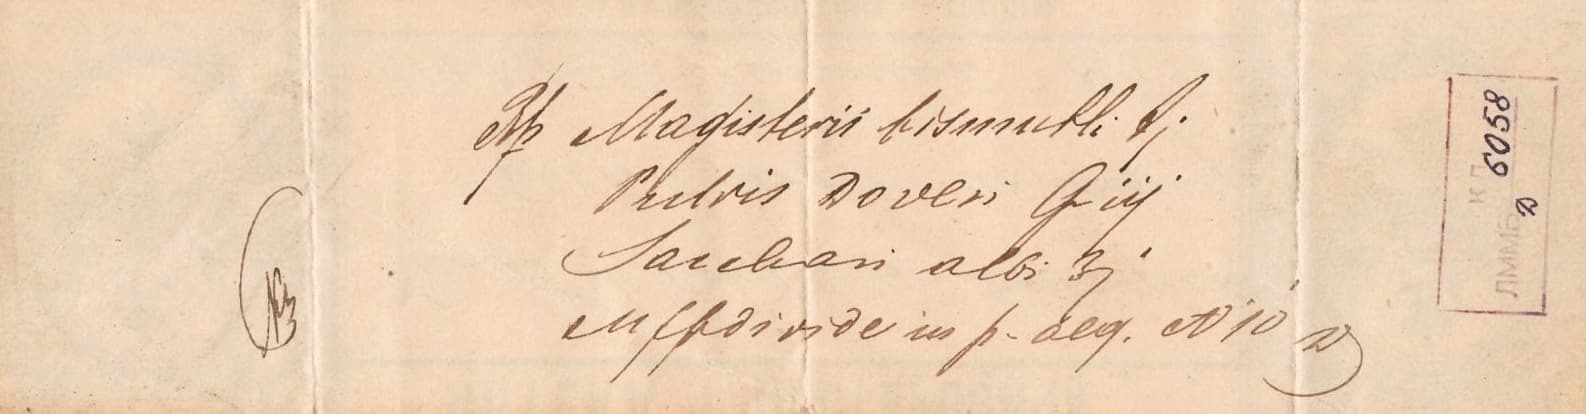 Rp Magisterii bismuthi ℈j
Pulvis Doveri G iij
Sacchari albi ʒj
M f p divide in p. aeq. N 10
D
№ 3
КП
ЛММБ 6058
D